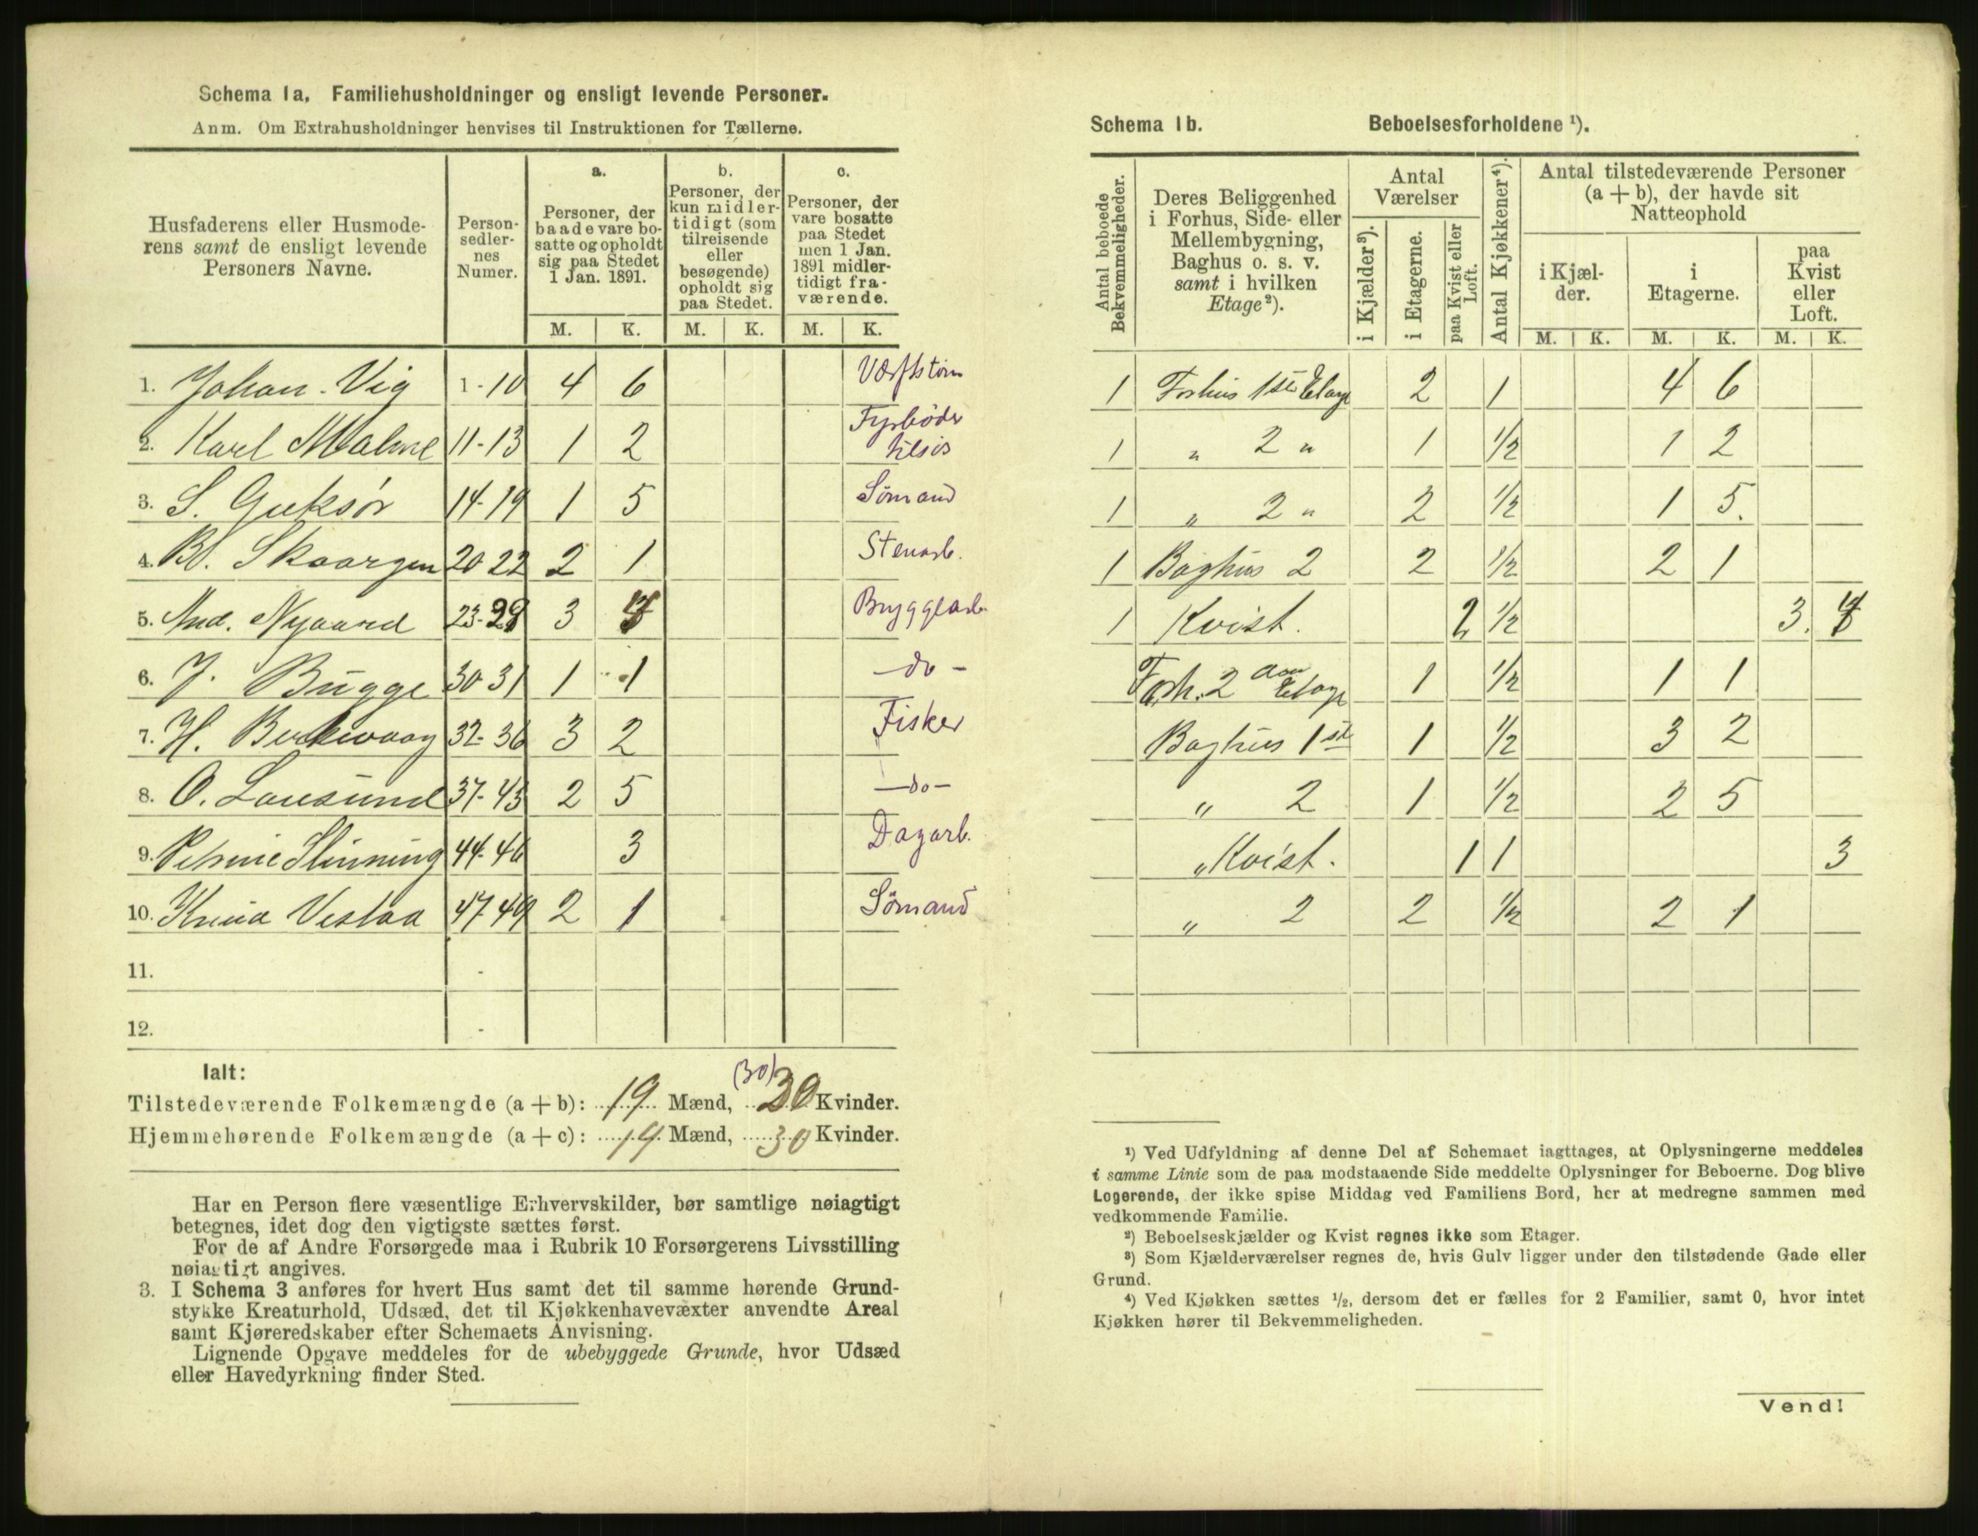 Schema 1a. Familiehusholdninger og ensligt levende Personer.
Anm. Om Extrahusholdninger henvises til Instruktionen for Tællerne.
Husfaderens eller Husmoderens samt de ensligt levende Personers Navne.
Personsedlernes Numer.
a. Personer, der baade vare bosatte og opholdt sig paa Stedet 1 Jan. 1891.
b. Personer, der kun midlertidigt (som tilreisende eller besøgende) opholdt sig paa Stedet.
c. Personer, der vare bosatte paa Stedet men 1 Jan. 1891 midlertidigt fraværende.
M. K. M. K. M. K.
1. Johan Vig 1-10 4 6
2. Karl Malme 11-13 1 2 Fyrbøder
3. S. 14-19 1 5 Sømand
4. Skaargen 20-22 2 1 Stenarb.
5. And. Nyaard 23-29 3 4 Bryggearb.
6. J. Bugge 30-31 1 1 -do-
7. H. 32-36 3 2 Fisker
8. O. Lausund 37-43 2 5 -do-
9. Petrine Slinning 44-46 3 Dagarb.
10. Knud Vestaa 47-49 2 1 Sømand
11. -
12. -
Ialt:
(30)
Tilstedeværende Folkemængde (a + b): 19 Mænd, 30 Kvinder.
Hjemmehørende Folkemængde (a + c): 19 Mænd, 30 Kvinder.
Har en Person flere væsentlige Erhvervskilder, bør samtlige nøiagtigt
betegnes, idet dog den vigtigste sættes først.
For de af Andre Forsørgede maa i Rubrik 10 Forsørgerens Livsstilling
nøiagtigt angives.
3. I Schema 3 anføres for hvert Hus samt det til samme hørende Grund-
stykke Kreaturhold, Udsæd, det til Kjøkkenhavevæxter anvendte Areal
samt Kjøreredskaber efter Schemaets Anvisning.
Lignende Opgave meddeles for de ubebyggede Grunde, hvor Udsæd
eller Havedyrkning finder Sted.
Schema 1b. Beboelsesforholdene ¹).
Antal beboede Bekvemmeligheder.
Deres Beliggenhed i Forhus, Side- eller Mellembygning, Baghus o. s. v. samt i hvilken Etage ²).
Antal Værelser
i Kjælder ³).
i Etagerne.
paa Kvist eller Loft.
Antal Kjøkkener ⁴).
Antal tilstedeværende Personer (a + b), der havde sit Natteophold
i Kjælder.
i Etagerne.
paa Kvist eller Loft.
M. K. M. K. M. K.
1 Forhus 1ste Etage 2 1 4 6
1 " 2 " 1 1/2 1 2
1 " 2 " 2 1/2 1 5.
1 Baghus 2 2 1/2 2 1
1 Kvist. 2 1/2 3. 4
Forh. 2 Etage 1 1/2 1 1
Baghus 1st 1 1/2 3 2
" 2 1 1/2 2 5
" Kvist. 1 1 3
" 2 2 1/2 2 1
¹) Ved Udfyldning af denne Del af Schemaet iagttages, at Oplysningerne meddeles
i samme Linie som de paa modstaaende Side meddelte Oplysninger for Beboerne. Dog blive
Logerende, der ikke spise Middag ved Familiens Bord, her at medregne sammen med
vedkommende Familie.
²) Beboelseskjælder og Kvist regnes ikke som Etager.
³) Som Kjælderværelser regnes de, hvis Gulv ligger under den tilstødende Gade eller
Grund.
⁴) Ved Kjøkken sættes ½, dersom det er fælles for 2 Familier, samt 0, hvor intet
Kjøkken hører til Bekvemmeligheden.
Vend!